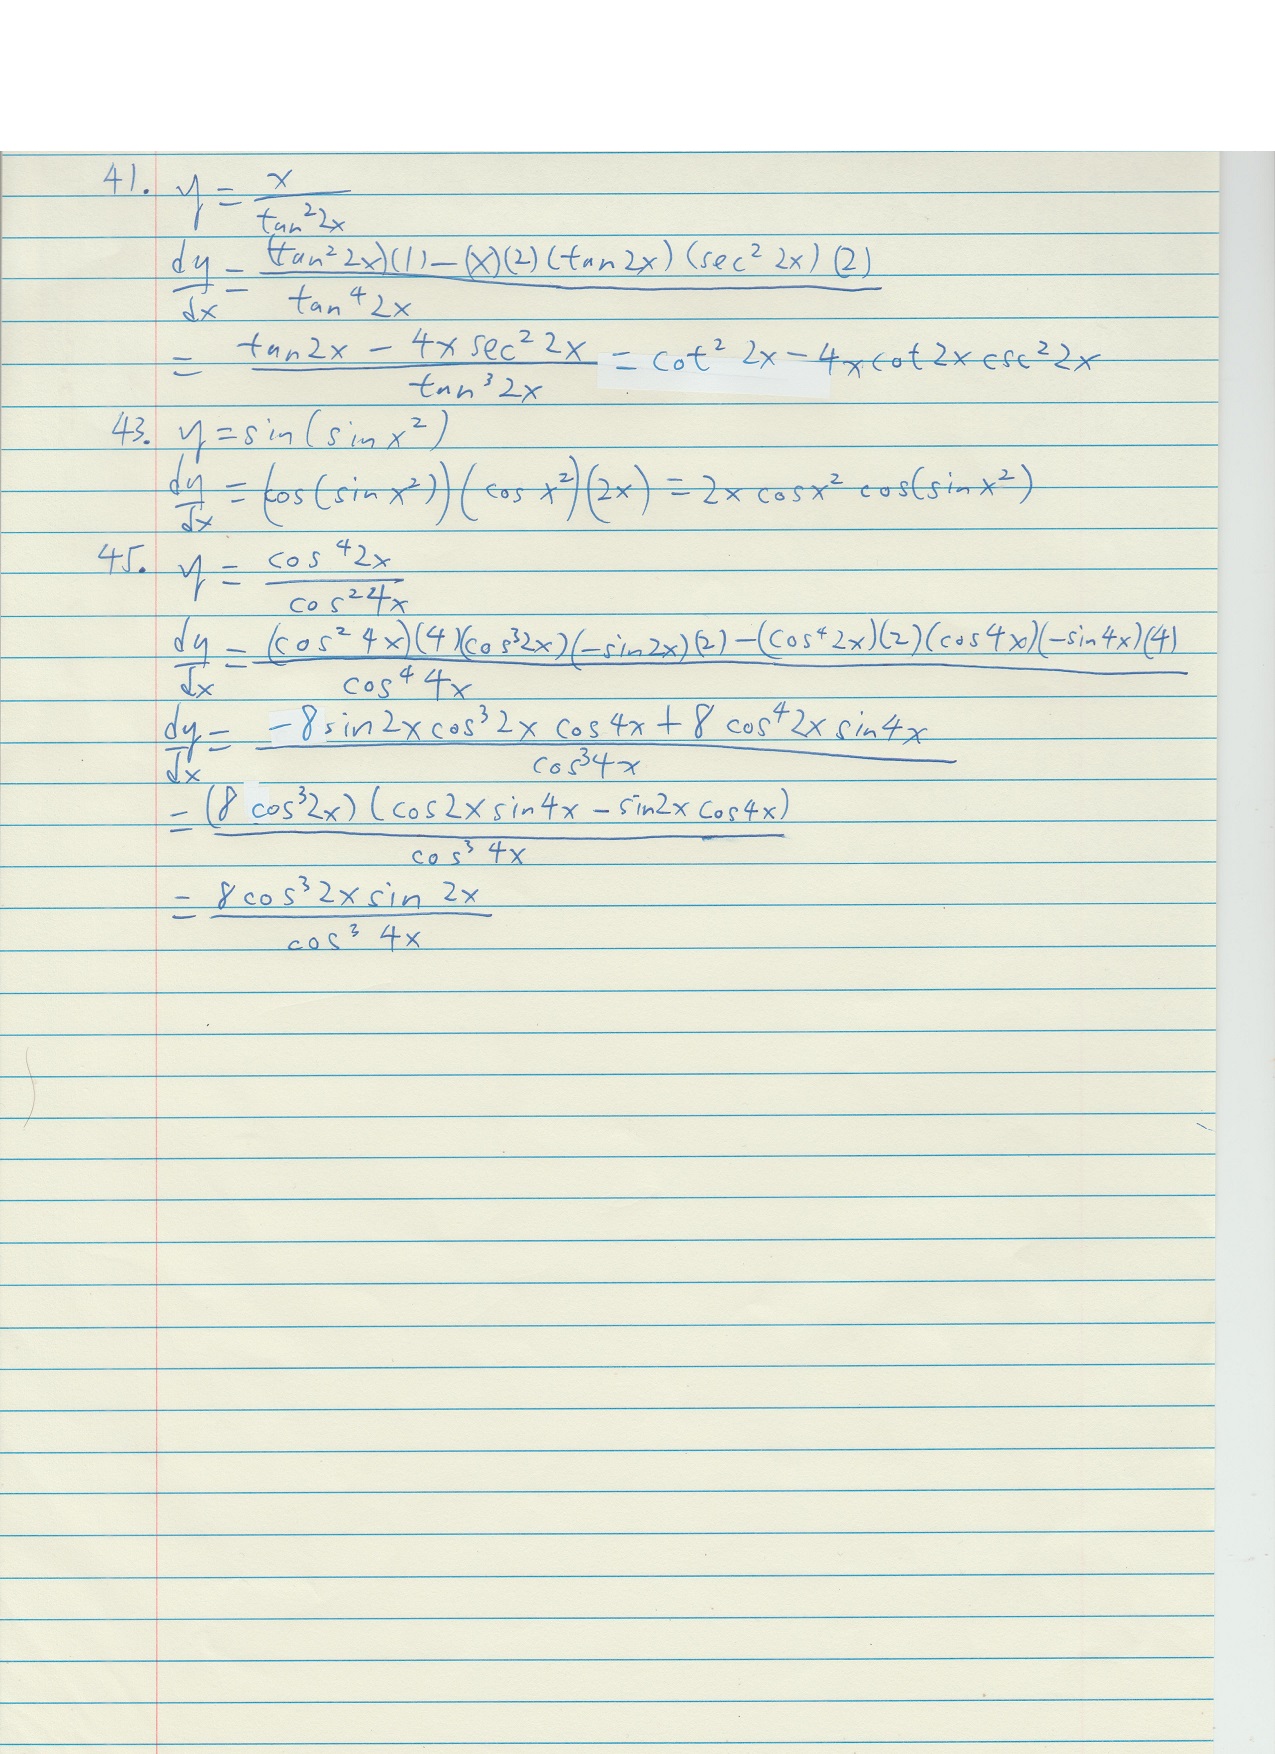 41. y = x / tan² 2x
dy/dx = (tan² 2x)(1) - (x)(2)(tan 2x)(sec² 2x)(2) / tan⁴ 2x
= tan 2x - 4x sec² 2x / tan³ 2x = cot² 2x - 4x cot 2x csc² 2x
43. y = sin(sin x²)
dy/dx = (cos(sin x²))(cos x²)(2x) = 2x cos x² cos(sin x²)
45. y = cos⁴ 2x / cos² 4x
dy/dx = (cos² 4x)(4)(cos³ 2x)(-sin 2x)(2) - (cos⁴ 2x)(2)(cos 4x)(-sin 4x)(4) / cos⁴ 4x
dy/dx = -8 sin 2x cos³ 2x cos 4x + 8 cos⁴ 2x sin 4x / cos³ 4x
= (8 cos³ 2x)(cos 2x sin 4x - sin 2x cos 4x) / cos³ 4x
= 8 cos³ 2x sin 2x / cos³ 4x